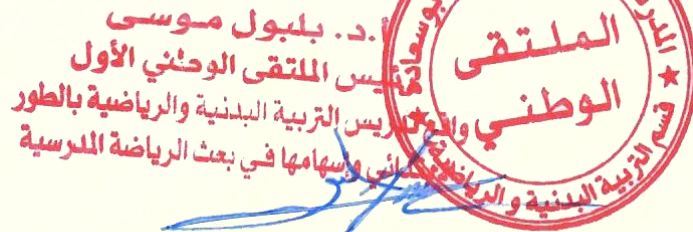 أ.د. بلبول موسى
رئيس الملتقى الوطني الأول
واقع تدريس التربية البدنية والرياضية بالطور
الابتدائي وإسهامها في بعث الرياضة المدرسية
الملتقى
الوطني
قسم التربية البدنية والرياضية
بوسعادة